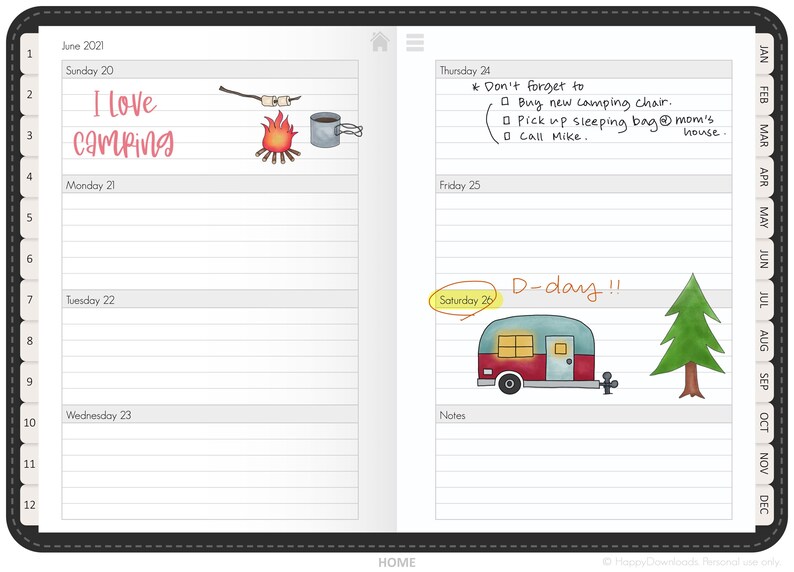 June 2021
Sunday 20
I love
camping
Monday 21
Tuesday 22
Wednesday 23
Thursday 24
* Don't forget to
Buy new camping chair.
Pick up sleeping bag @ mom's
house.
Call Mike.
Friday 25
D-day !!
Saturday 26
Notes
1
2
3
4
5
6
7
8
9
10
11
12
JAN
FEB
MAR
APR
MAY
JUN
JUL
AUG
SEP
OCT
NOV
DEC
HOME
© HappyDownloads Personal use only.